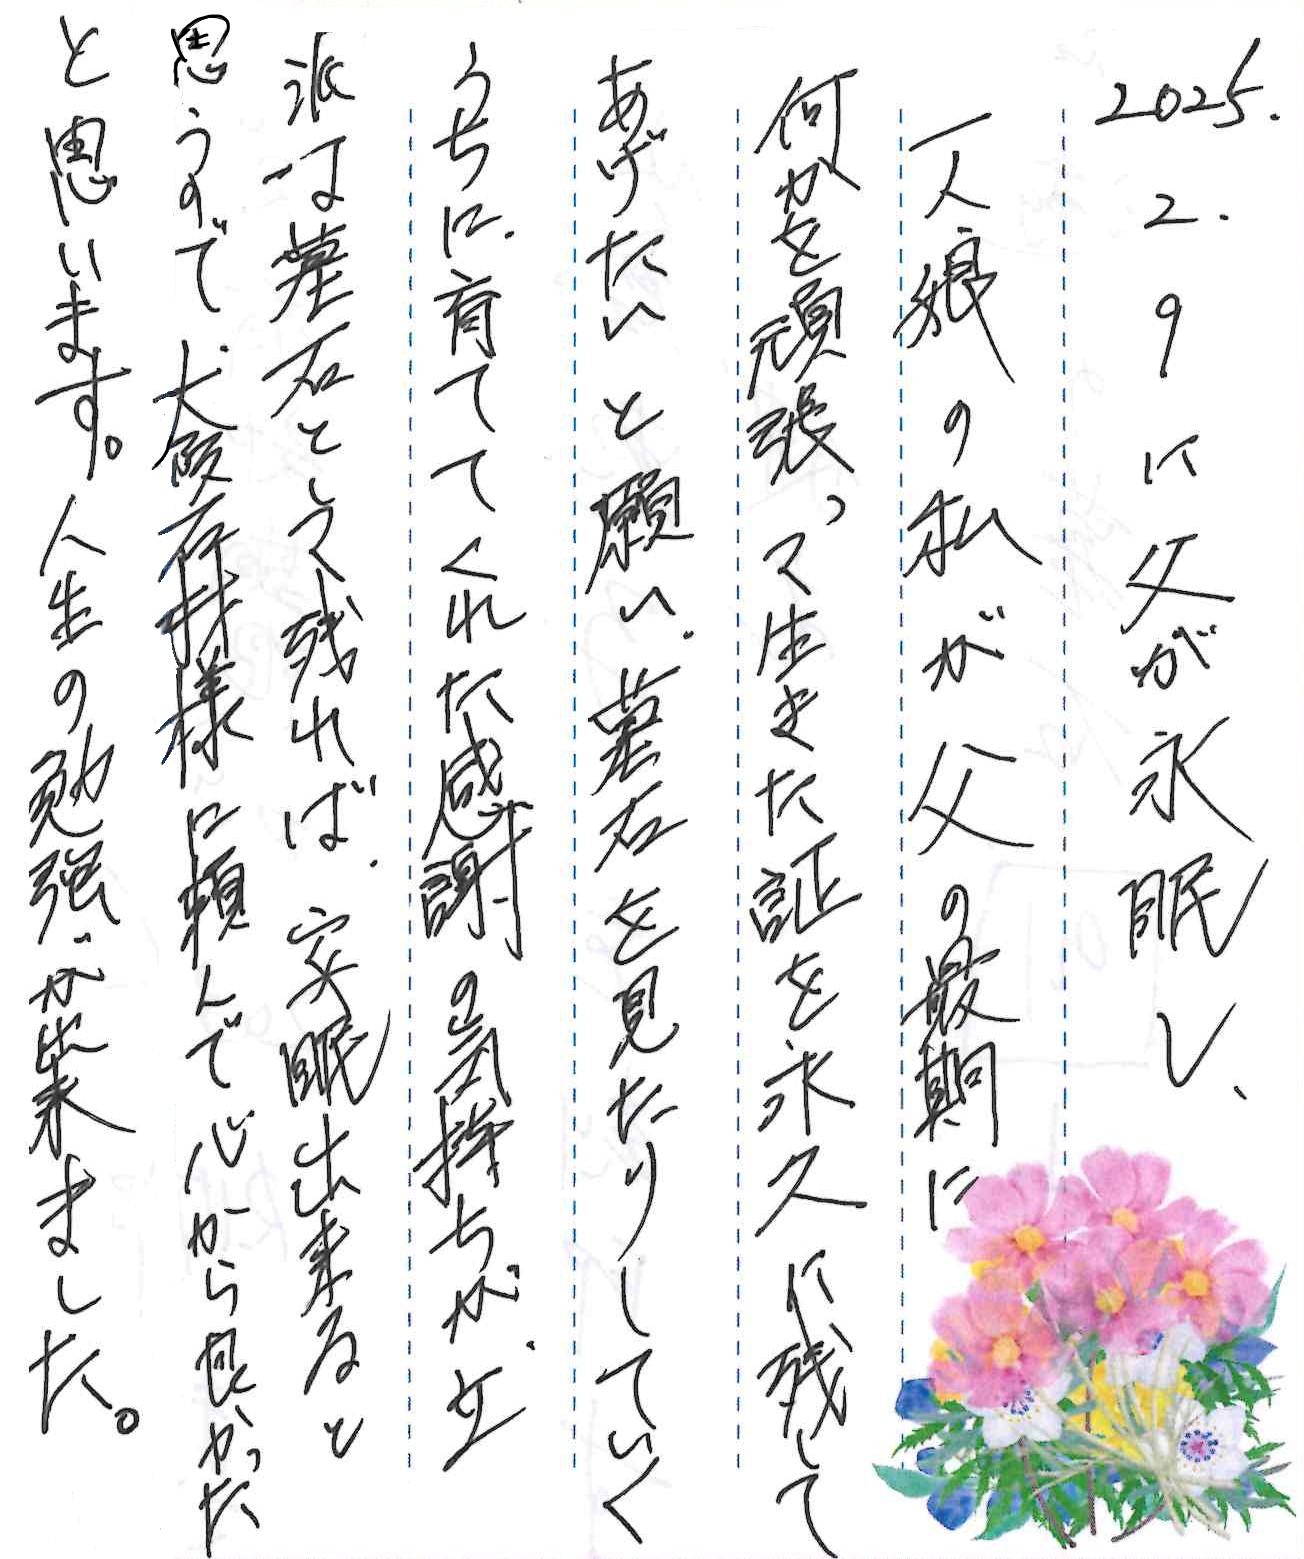 2025.2.9に父が永眠し、
一人娘の私が父の最期に
何かを頑張って生きた証を永久に残して
あげたいと願い、墓石を見たりしていく
うちに、育ててくれた感謝の気持ちが、立
派な墓石として残れば、安眠出来ると
思うので大阪石材様に頼んで心から良かった
と思います。人生の勉強が出来ました。